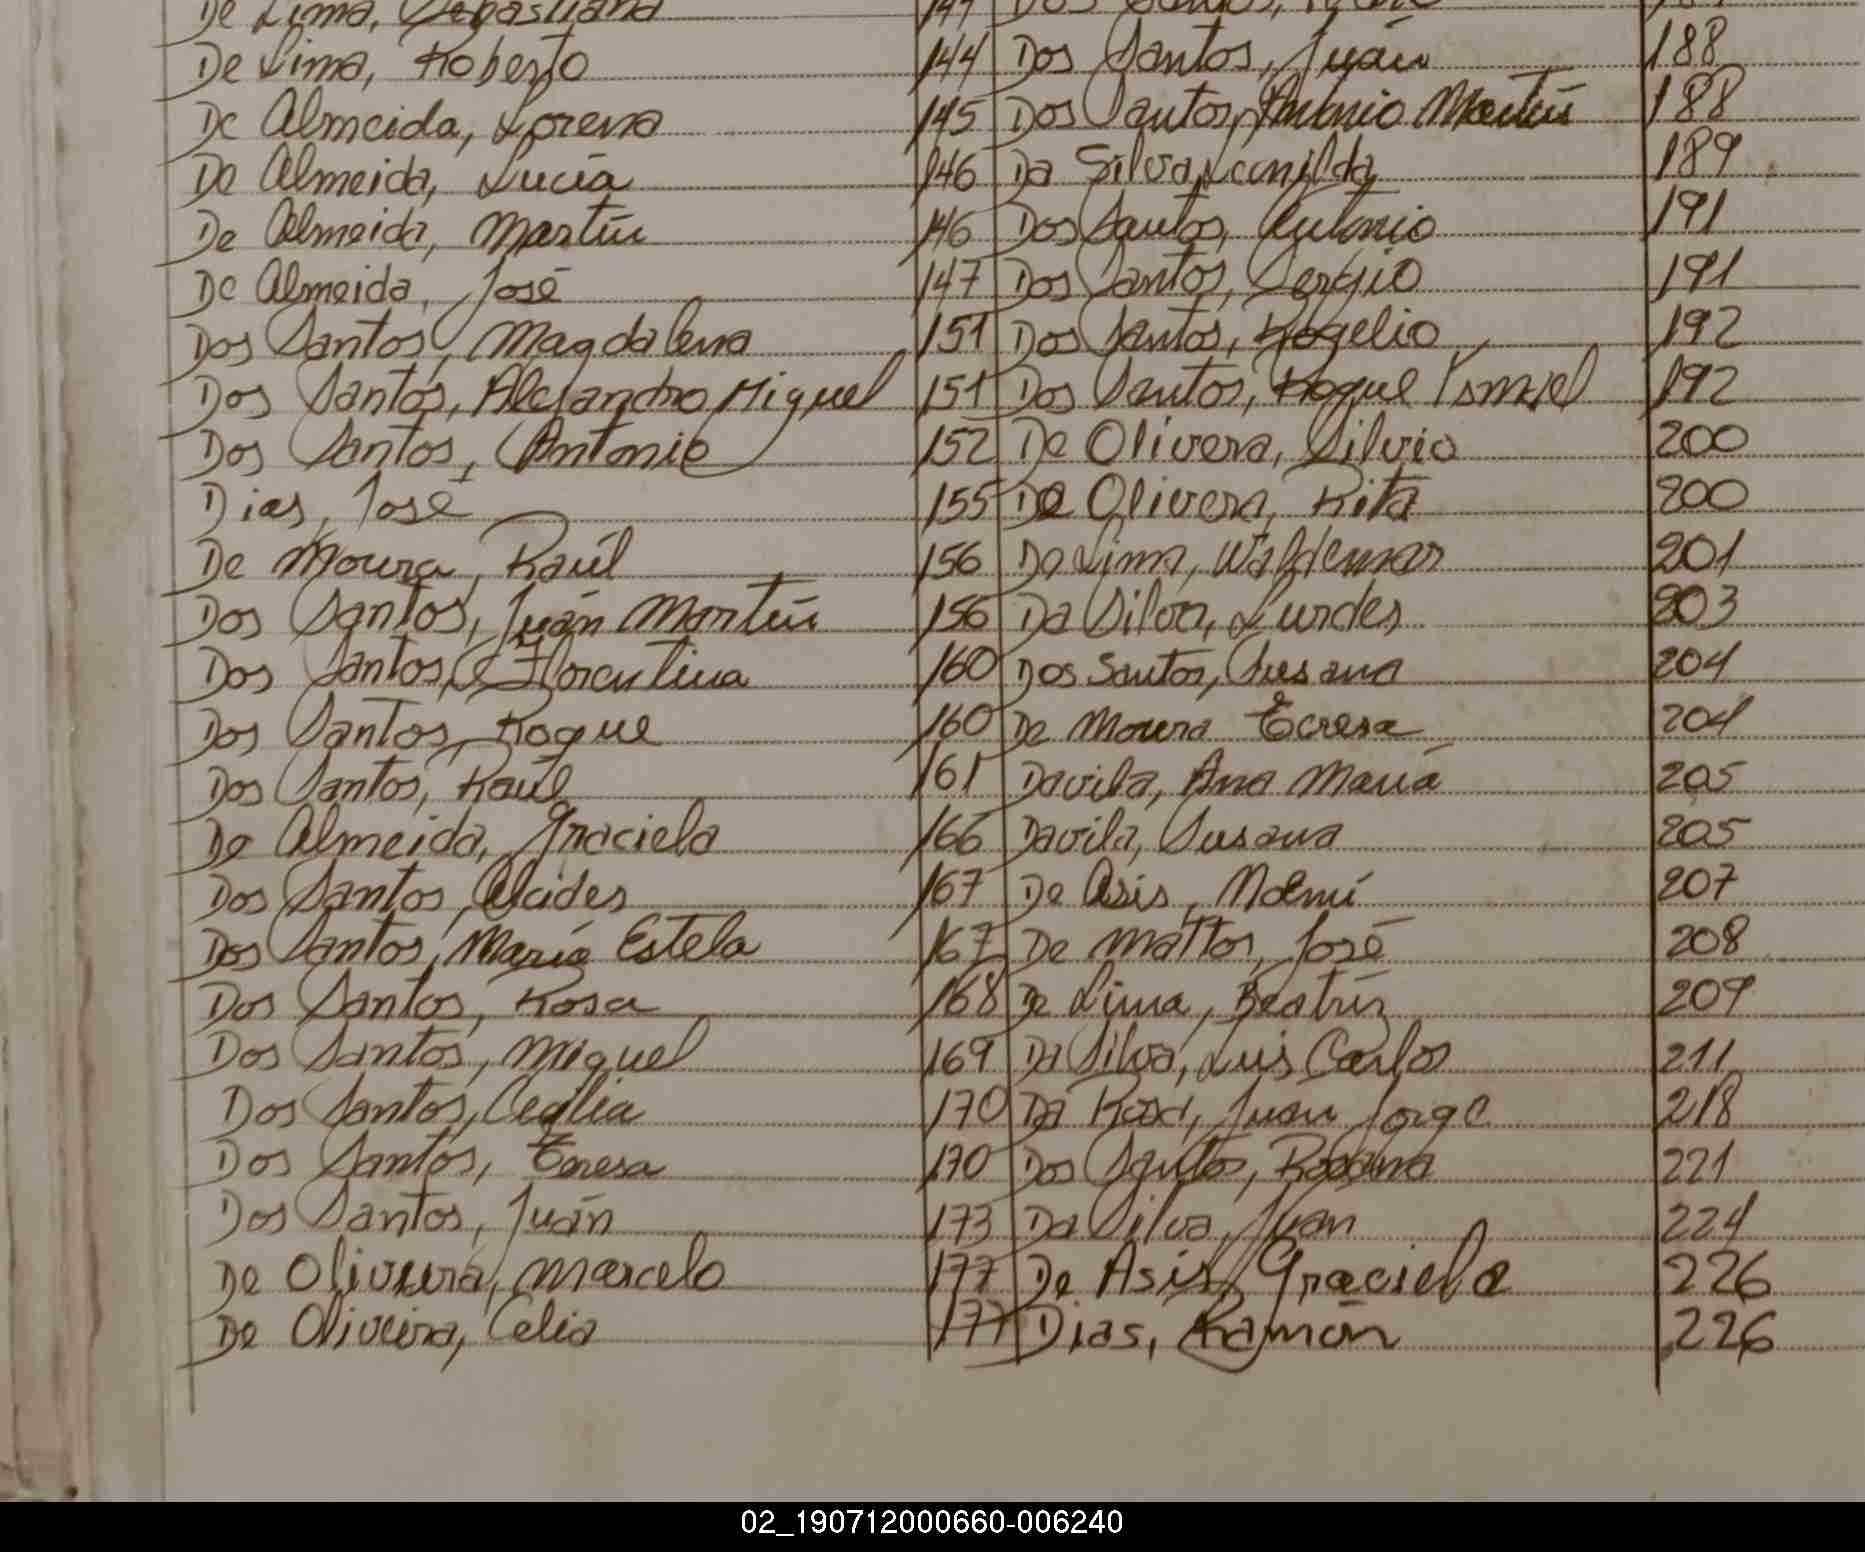 De Lima, Sebastiana 144
De Lima, Roberto 144
De Almeida, Lorena 145
De Almeida, Lucía 146
De Almeida, Martín 146
De Almeida, José 147
Dos Santos, Magdalena 151
Dos Santos, Alejandro Miguel 151
Dos Santos, Antonio 152
Dias, José 155
De Moura, Raúl 156
Dos Santos, Juán Martín 156
Dos Santos, Florentina 160
Dos Santos, Roque 160
Dos Santos, Raúl 161
De Almeida, Graciela 166
Dos Santos, Alcides 167
Dos Santos, María Estela 167
Dos Santos, Rosa 168
Dos Santos, Miguel 169
Dos Santos, 170
Dos Santos, Teresa 170
Dos Santos, Juán 173
De Oliveira, Marcelo 177
De Oliveira, Celia 177
Dos Santos,
Dos Santos, Juán 188
Dos Santos, Antonio Martín 188
Da Silva, Leonilda 189
Dos Santos, Antonio 191
Dos Santos, Sergio 191
Dos Santos, Rogelio 192
Dos Santos, Roque Ismael 192
De Olivera, Silvio 200
De Olivera, Rita 200
De Lima, Waldemar 201
Da Silva, Lurdes 203
Dos Santos, Susana 204
De Moura Teresa 204
Davila, Ana María 205
Davila, Susana 205
De Asis, Noemí 207
De Mattos, José 208
De Lima, Beatríz 209
Da Silva, Luis Carlos 211
Da Rosa, Juan Jorge 218
Dos Santos, Rosana 221
Da Silva, Juan 224
De Asis, Graciela 226
Dias, Ramón 226
02_190712000660-006240